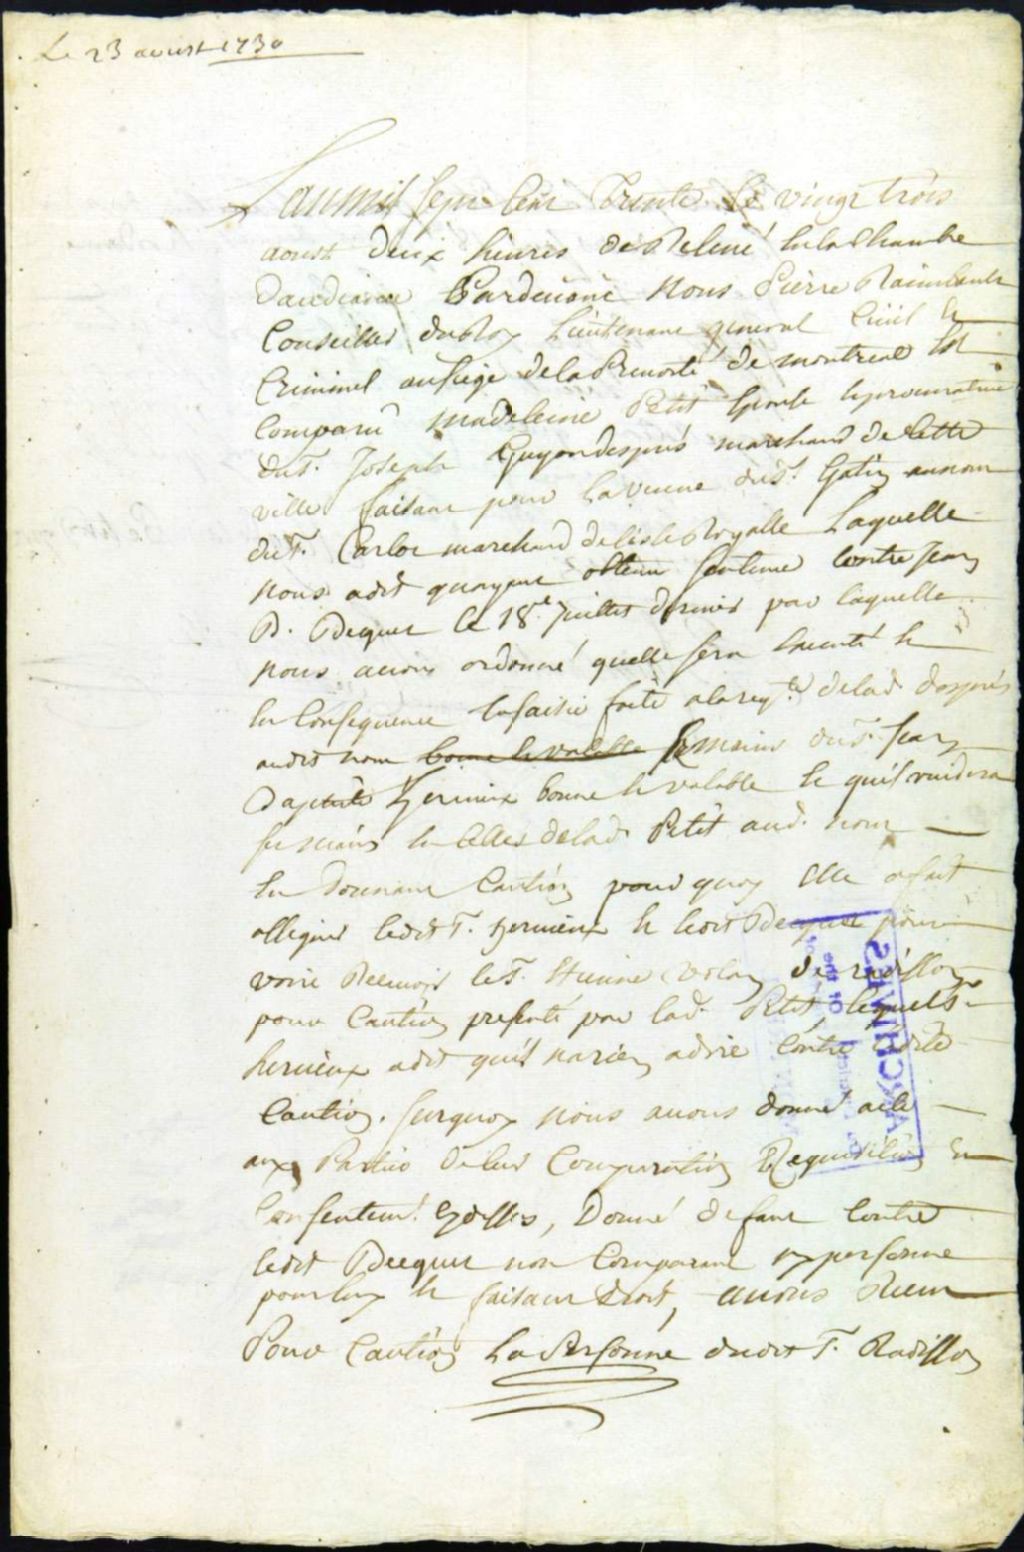 Le 23 aoust 1730
Lan mil sept cent Trente Le vingt trois
aoust deux heures de Relevé En la Chambre
daudiance Pardevant Nous Pierre Raimbault
Conseiller du Roy Lieutenant general Civil Et
Criminel au siege de la Prevosté de montreal Est
Comparu madeleine Petit Epouse Et procuratrice
du Sr. Joseph Guyon desprès marchand de Cette
ville faisant pour la veuve du Sr. Gatin au nom
du Sr. Carlot marchand de lisle Royalle Laquelle
Nous a dit quayant obtenu sentence contre Jean
B. Decquet le 18e. Juillet dernier par laquelle
nous avons ordonné quelle sera Executé Et
En Consequence la saisie faite a la reqte. de lad. desprès
audit nom bonne Et valable Es mains du Sr. Jean
Baptiste hervieux bonne Et valable Et quil vuidera
ses mains En Celles de lad. Petit aud. nom
En Donnant Caution pourquoy Elle a fait
assigner ledit Sr. hervieux Et ledit Decquet pour
voir Recevoir le Sr. Etienne Volan de radisson
pour Caution presenté par lad. Petit lequel Sr.
hervieux a dit quil na rien a dire Contre ladite
Caution. Surquoy Nous avons donné acte
aux Parties de leur Comparution Requisition Et
Consentemt. , Donné defaut Contre
ledit Decquet non Comparant ny personne
pour luy Et faisant droit, avons Receu
Pour Caution La Personne dudit Sr. Radisson
ARCHIVES
of the